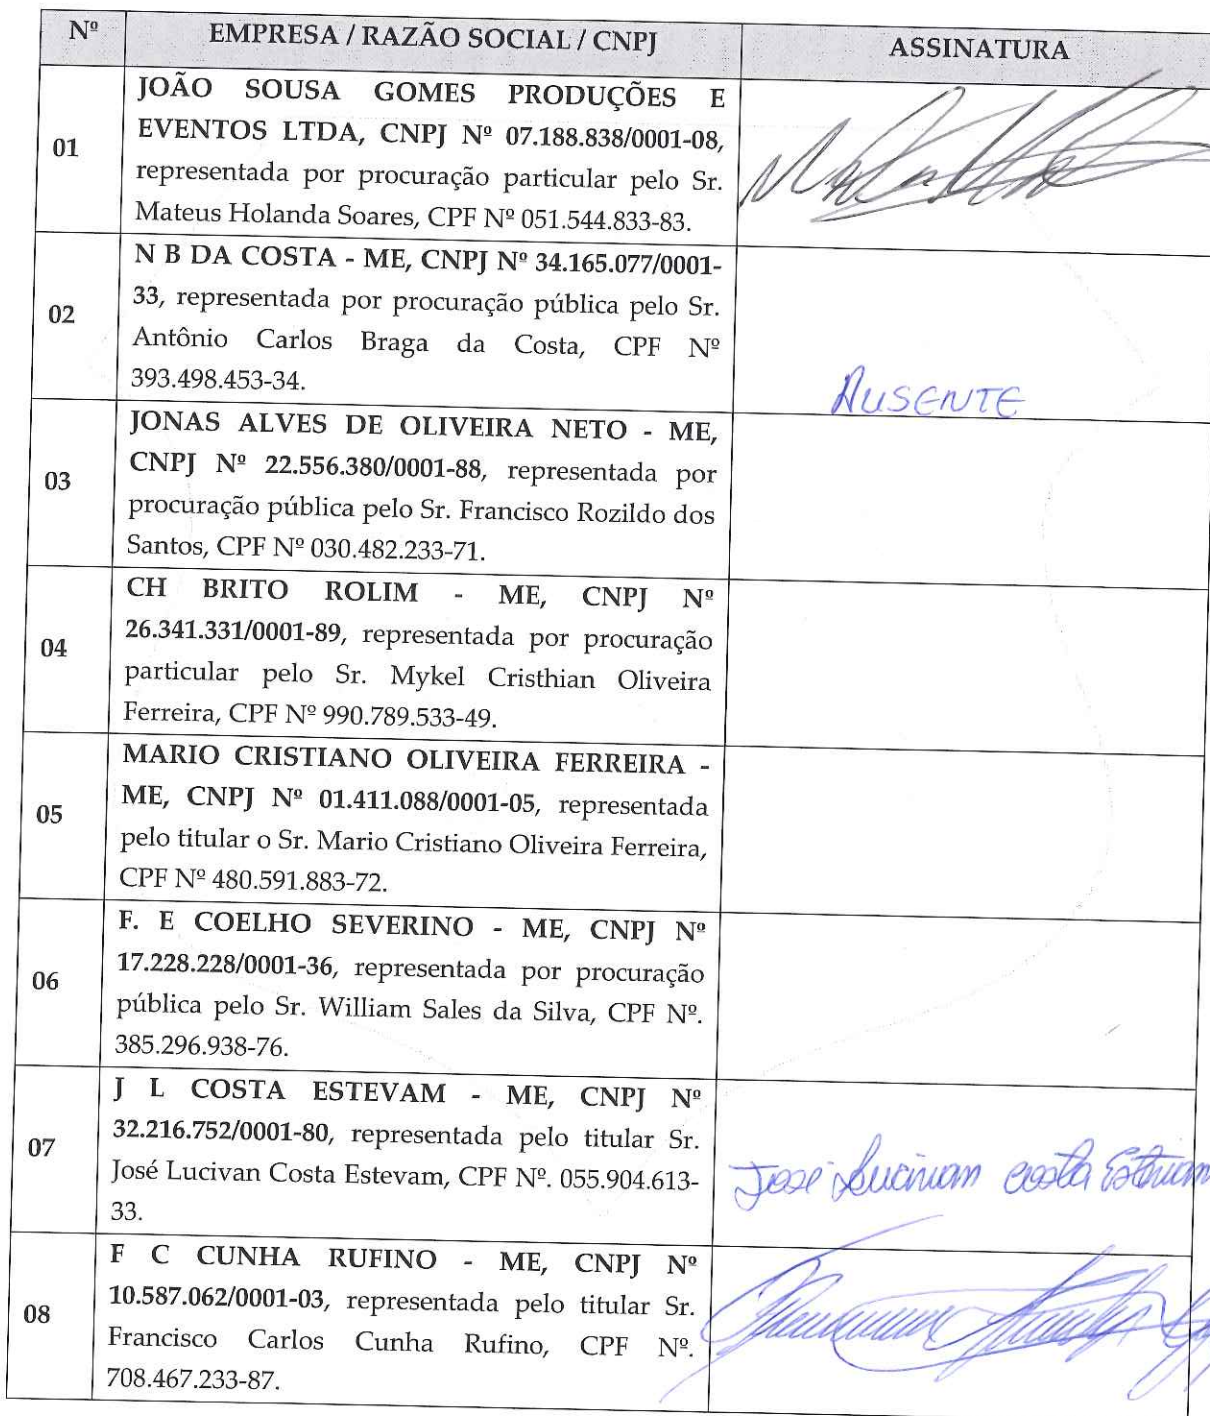 Nº EMPRESA / RAZÃO SOCIAL / CNPJ ASSINATURA
01
JOÃO SOUSA GOMES PRODUÇÕES E
EVENTOS LTDA, CNPJ Nº 07.188.838/0001-08,
representada por procuração particular pelo Sr.
Mateus Holanda Soares, CPF Nº 051.544.833-83.
02
N B DA COSTA - ME, CNPJ Nº 34.165.077/0001-
33, representada por procuração pública pelo Sr.
Antônio Carlos Braga da Costa, CPF Nº
393.498.453-34.
AUSENTE
03
JONAS ALVES DE OLIVEIRA NETO - ME,
CNPJ Nº 22.556.380/0001-88, representada por
procuração pública pelo Sr. Francisco Rozildo dos
Santos, CPF Nº 030.482.233-71.
04
CH BRITO ROLIM - ME, CNPJ Nº
26.341.331/0001-89, representada por procuração
particular pelo Sr. Mykel Cristhian Oliveira
Ferreira, CPF Nº 990.789.533-49.
05
MARIO CRISTIANO OLIVEIRA FERREIRA -
ME, CNPJ Nº 01.411.088/0001-05, representada
pelo titular o Sr. Mario Cristiano Oliveira Ferreira,
CPF Nº 480.591.883-72.
06
F. E COELHO SEVERINO - ME, CNPJ Nº
17.228.228/0001-36, representada por procuração
pública pelo Sr. William Sales da Silva, CPF Nº.
385.296.938-76.
07
J L COSTA ESTEVAM - ME, CNPJ Nº
32.216.752/0001-80, representada pelo titular Sr.
José Lucivan Costa Estevam, CPF Nº. 055.904.613-
33.
José Lucivan Costa Estevam
08
F C CUNHA RUFINO - ME, CNPJ Nº
10.587.062/0001-03, representada pelo titular Sr.
Francisco Carlos Cunha Rufino, CPF Nº.
708.467.233-87.